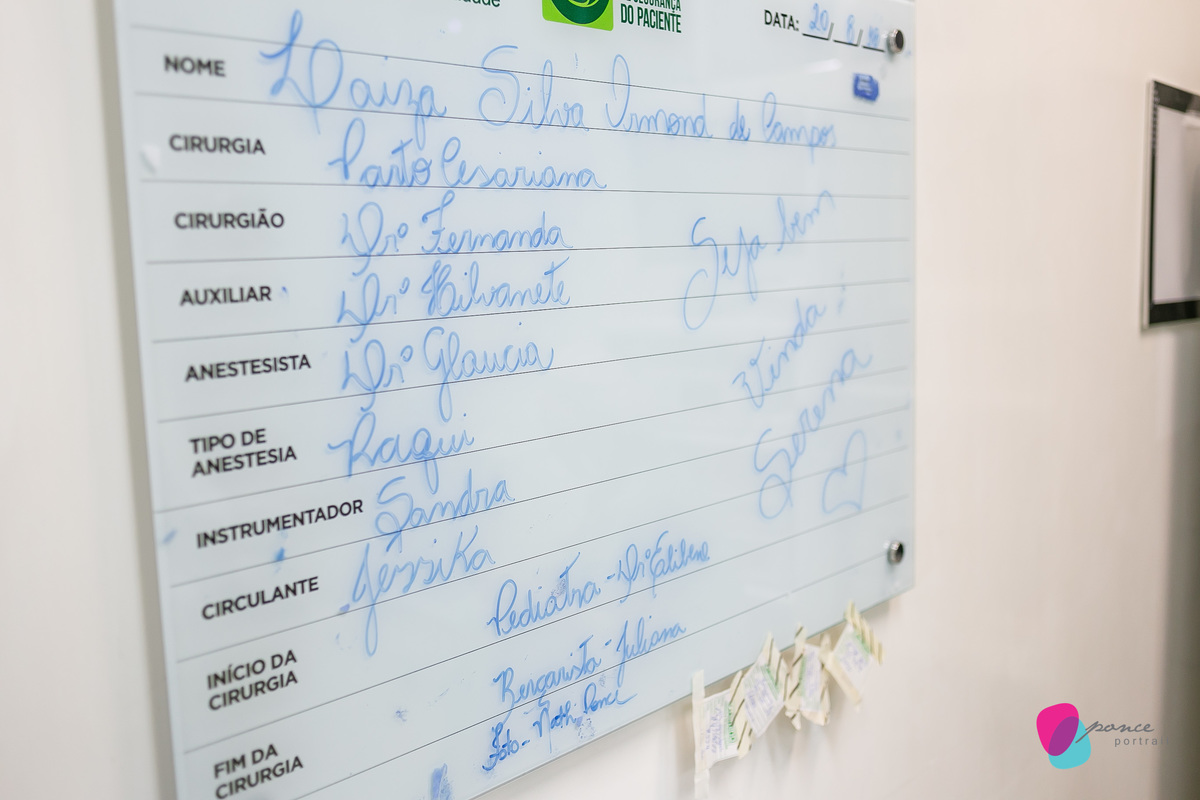 SEGURANÇA
DO PACIENTE
DATA: 20/8/
NOME Daiza Silva Ormond de Campos
CIRURGIA Parto Cesariana
CIRURGIÃO Drª Fernanda
AUXILIAR Drª Hilvanete
ANESTESISTA Drª Glaucia
TIPO DE ANESTESIA Raqui
INSTRUMENTADOR Sandra
CIRCULANTE Jéssika
INÍCIO DA CIRURGIA
FIM DA CIRURGIA
Seja bem
Vinda;
Serena
Pediatra - Drª
Berçarista - Juliana
Foto - Nath Ponce
ponce
portrait